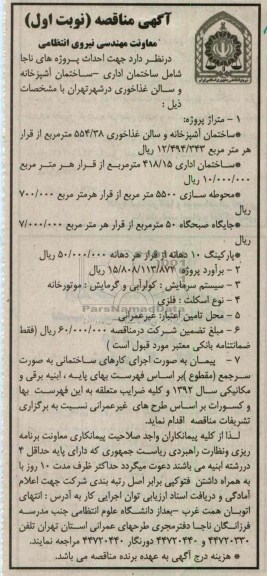 آگهی مناقصه (نوبت اول)
معاونت مهندسی نیروی انتظامی
درنظر دارد جهت احداث پروژه های ناجا
شامل ساختمان اداری –ساختمان آشپزخانه
و سالن غذاخوری درشهرتهران با مشخصات
ذیل :
۱ – متراژ پروژه:
*ساختمان آشپزخانه و سالن غذاخوری ۵۵۴/۳۸ مترمربع از قرار
هر متر مربع ۱۲/۴۹۴/۳۴۳ ریال
*ساختمان اداری ۴۱۸/۱۵ مترمربع از قرار هر متر مربع
۱۰/۰۰۰/۰۰۰ ریال
*محوطه سازی ۵۵۰۰ متر مربع از قرار هرمتر مربع ۷۰۰/۰۰۰
ریال
*جایگاه صبحگاه ۵۰ مترمربع از قرار هر متر مربع ۷/۰۰۰/۰۰۰
ریال
*پارکینگ ۱۰ دهانه از قرار هر دهانه ۵۰/۰۰۰/۰۰۰ ریال
۲ – برآورد پروژه: ۱۵/۸۰۸/۱۱۳/۸۷۲ ریال
۳ – سیستم سرمایش : کولرآبی و گرمایش : موتورخانه
۴ – نوع اسکلت : فلزی
۵ – محل تامین اعتبار: غیرعمرانی
۶ – مبلغ تضمین شرکت درمناقصه ۶۰/۰۰۰/۰۰۰ ریال (فقط
ضمانتنامه بانکی معتبر مورد قبول است )
۷ – پیمان به صورت اجرای کارهای ساختمانی به صورت
سرجمع (مقطوع )بر اساس فهرست بهای پایه ، ابنیه برقی و
مکانیکی سال ۱۳۹۲ و کلیه ضرایب متعلقه به این فهرست بها
و کسورات بر اساس طرح های غیرعمرانی نسبت به برگزاری
تشریفات مناقصه اقدام نماید.
لذا از کلیه پیمانکاران واجد صلاحیت پیمانکاری معاونت برنامه
ریزی ونظارت راهبردی ریاست جمهوری که دارای پایه حداقل ۴
دررشته ابنیه می باشند دعوت میگردد حداکثر ظرف مدت ۱۰ روز با
به همراه داشتن فتوکپی برابر اصل رتبه بندی شرکت جهت اعلام
آمادگی و دریافت اسناد ارزیابی توان اجرایی کار به آدرس : انتهای
اتوبان همت غرب –بعداز دانشگاه علوم انتظامی جنب مدرسه
فرزانگان ناجا دفترمجری طرحهای عمرانی استان تهران تلفن
۴۴۷۲۰۳۳۰ و ۴۴۷۲۰۴۴۰ دورنگار ۴۴۷۲۰۴۴۰ مراجعه نمایند.
* هزینه درج آگهی به عهده برنده مناقصه می باشد.
ParsNamadData